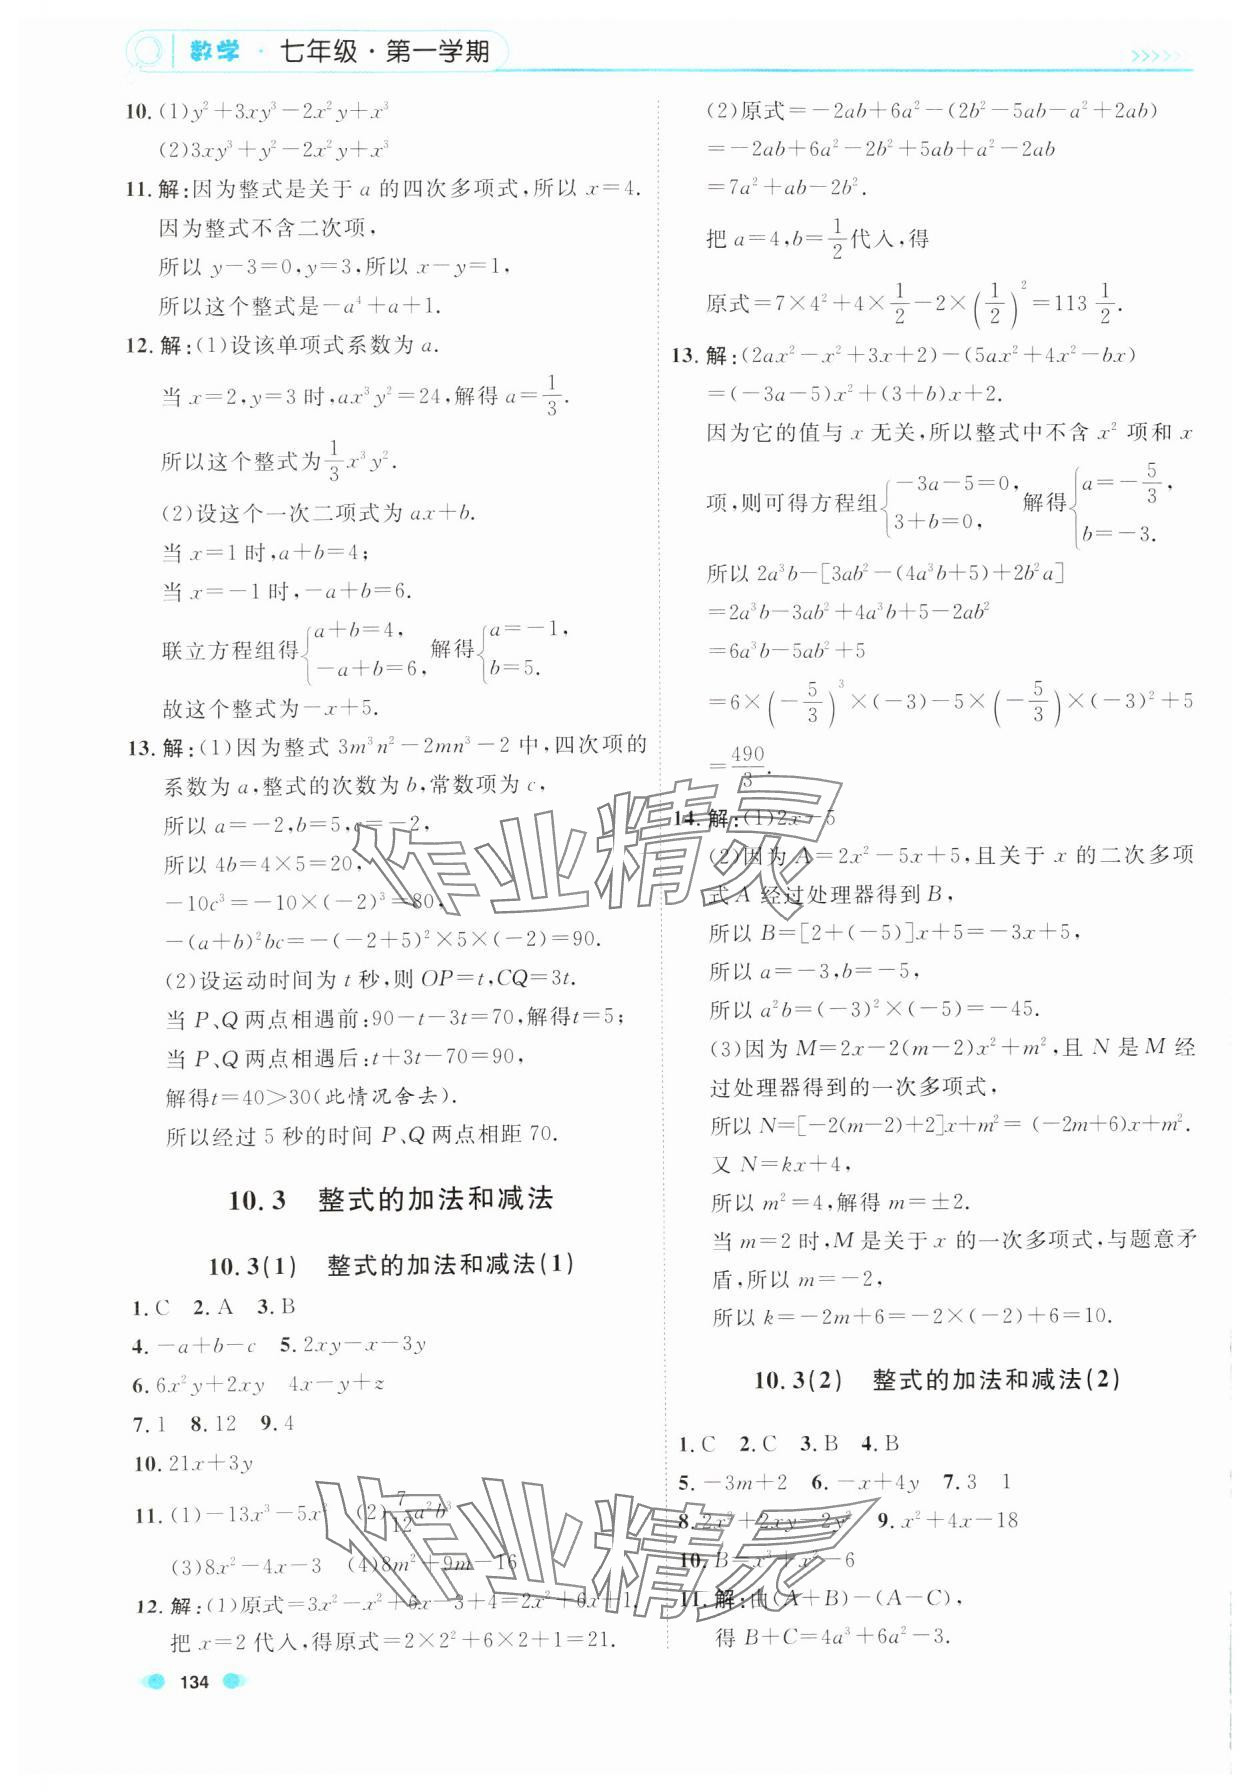 数学 · 七年级 · 第一学期
10. (1)y²+3xy³−2x²y+x³
(2)3xy³+y²−2x²y+x³
11. 解:因为整式是关于 a 的四次多项式,所以 x=4.
因为整式不含二次项,
所以 y−3=0,y=3,所以 x−y=1,
所以这个整式是−a⁴+a+1.
12. 解:(1)设该单项式系数为 a.
当 x=2,y=3 时,ax³y²=24,解得 a=1/3.
所以这个整式为1/3x³y².
(2)设这个一次二项式为 ax+b.
当 x=1 时,a+b=4;
当 x=−1 时,−a+b=6.
联立方程组得{a+b=4, −a+b=6, 解得{a=−1, b=5.
故这个整式为−x+5.
13. 解:(1)因为整式 3m³n²−2mn³−2 中,四次项的
系数为 a,整式的次数为 b,常数项为 c,
所以 a=−2,b=5,c=−2,
所以 4b=4×5=20,
−10c³=−10×(−2)³=80,
−(a+b)²bc=−(−2+5)²×5×(−2)=90.
(2)设运动时间为 t 秒,则 OP=t,CQ=3t.
当 P、Q 两点相遇前:90−t−3t=70,解得t=5;
当 P、Q 两点相遇后:t+3t−70=90,
解得t=40>30(此情况舍去).
所以经过 5 秒的时间 P、Q 两点相距 70.
10.3 整式的加法和减法
10.3(1) 整式的加法和减法(1)
1. C 2. A 3. B
4. −a+b−c 5. 2xy−x−3y
6. 6x²y+2xy 4x−y+z
7. 1 8. 12 9. 4
10. 21x+3y
11. (1)−13x³−5x² (2)7/12a²b³
(3)8x²−4x−3 (4)8m²+9m−16
12. 解:(1)原式=3x²−x²+6x−3+4=2x²+6x+1.
把 x=2 代入,得原式=2×2²+6×2+1=21.
(2)原式=−2ab+6a²−(2b²−5ab−a²+2ab)
=−2ab+6a²−2b²+5ab+a²−2ab
=7a²+ab−2b².
把 a=4,b=1/2代入,得
原式=7×4²+4×1/2−2×(1/2)²=113 1/2.
13. 解:(2ax²−x²+3x+2)−(5ax²+4x²−bx)
=(−3a−5)x²+(3+b)x+2.
因为它的值与 x 无关,所以整式中不含 x² 项和 x
项,则可得方程组{−3a−5=0, 3+b=0, 解得{a=−5/3, b=−3.
所以 2a³b−[3ab²−(4a³b+5)+2b²a]
=2a³b−3ab²+4a³b+5−2ab²
=6a³b−5ab²+5
=6×(−5/3)³×(−3)−5×(−5/3)×(−3)²+5
=490/3.
14. 解:(1)2x−5
(2)因为 A=2x²−5x+5,且关于 x 的二次多项
式 A 经过处理器得到 B,
所以 B=[2+(−5)]x+5=−3x+5,
所以 a=−3,b=−5,
所以 a²b=(−3)²×(−5)=−45.
(3)因为 M=2x−2(m−2)x²+m²,且 N 是 M 经
过处理器得到的一次多项式,
所以 N=[−2(m−2)+2]x+m²= (−2m+6)x+m².
又 N=kx+4,
所以 m²=4,解得 m=±2.
当 m=2 时,M 是关于 x 的一次多项式,与题意矛
盾,所以 m=−2,
所以 k=−2m+6=−2×(−2)+6=10.
10.3(2) 整式的加法和减法(2)
1. C 2. C 3. B 4. B
5. −3m+2 6. −x+4y 7. 3 1
8. 2x²+2xy−2y² 9. x²+4x−18
10. B=x³+x²−6
11. 解:由(A+B)−(A−C),
得 B+C=4a³+6a²−3.
134
作业精灵
作业精灵